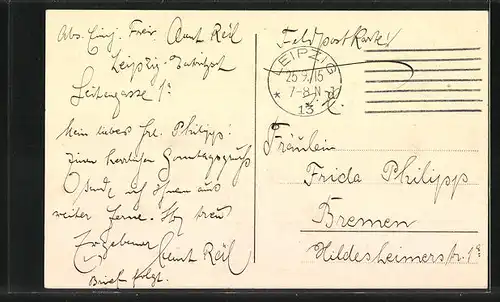 Abs. Einj. Freiw. Curt Reil
Leipzig
Mein liebes Frl. Philipp!
Einen herzlichen Sonntagsgruß
sende ich Ihnen aus
weiter Ferne. Ihr treu
Ergebener Curt Reil
Brief folgt.
Feldpostkarte!
LEIPZIG
25.9.15
7-8 N
* 13
Fräulein
Frida Philipp
Bremen
Hildesheimerstr. 18